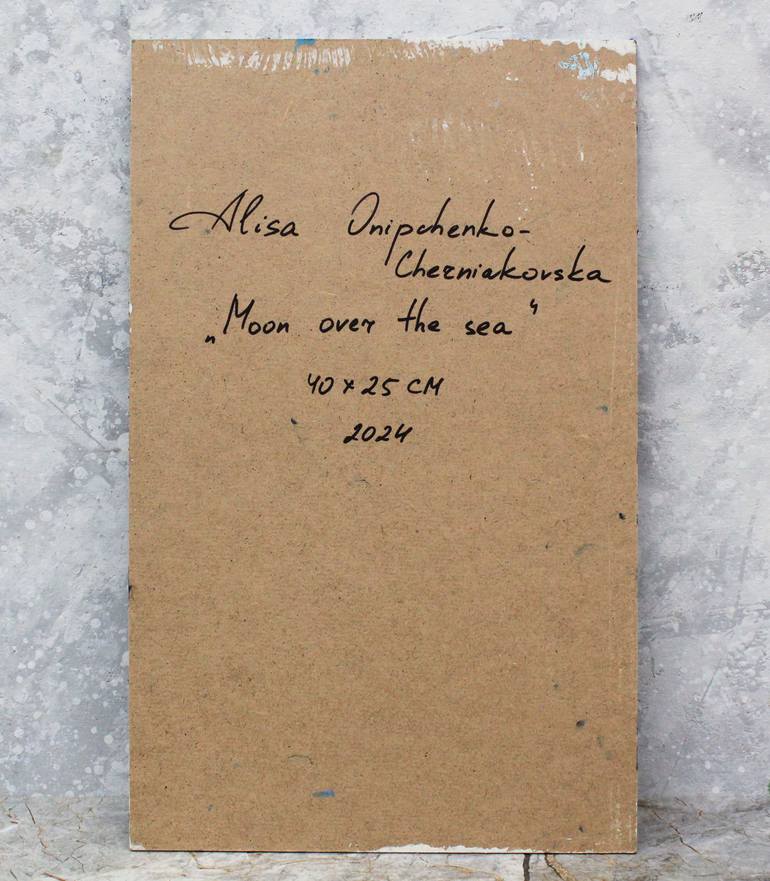 Alisa Onipchenko-
Cherniakovska
„Moon over the sea“
40 x 25 CM
2024